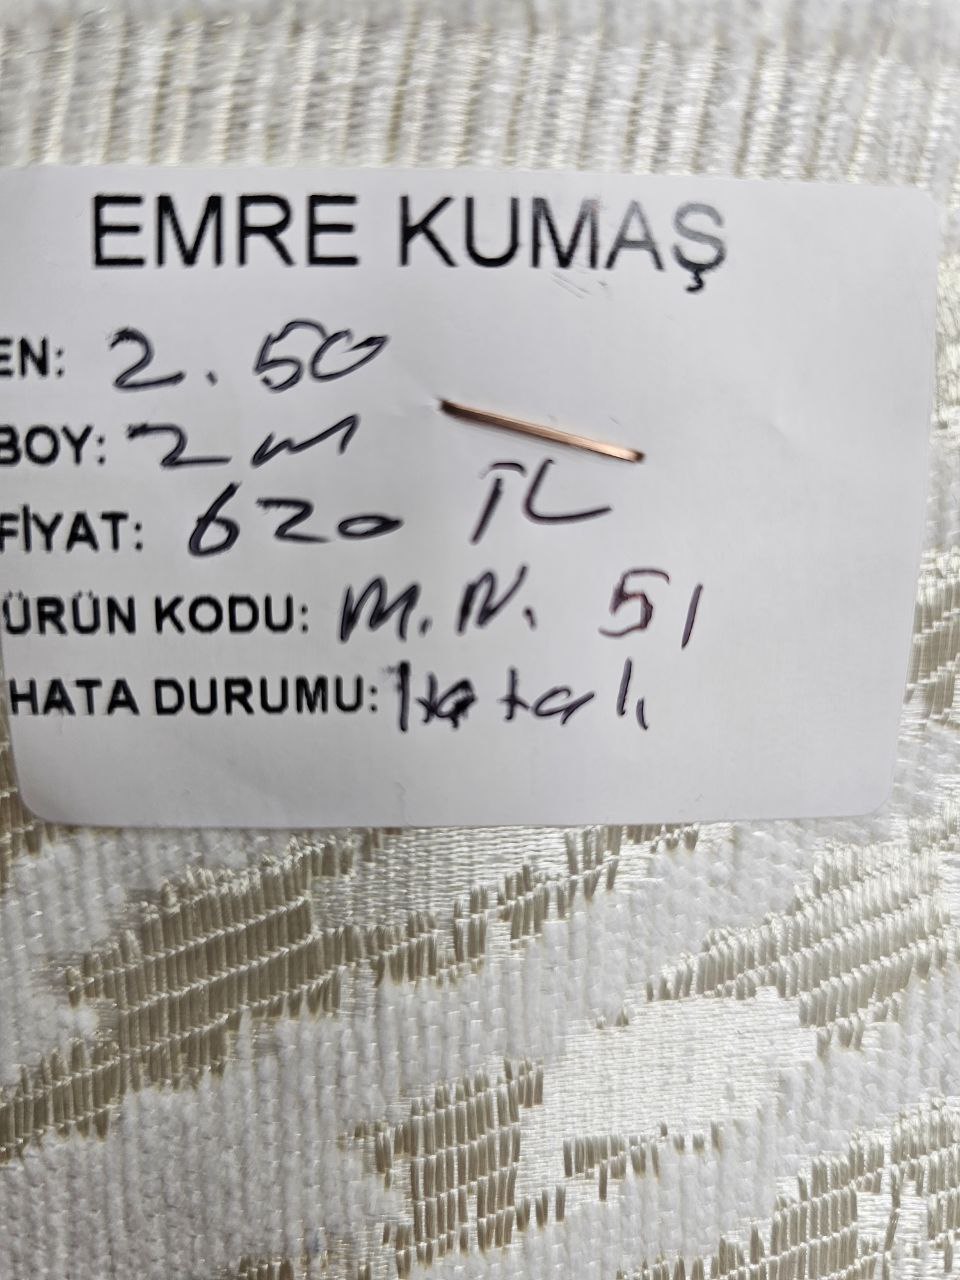 EMRE KUMAŞ
EN: 2.50
BOY: 2 m
FİYAT: 620 TL
ÜRÜN KODU: M.N. 51
HATA DURUMU: Hatalı